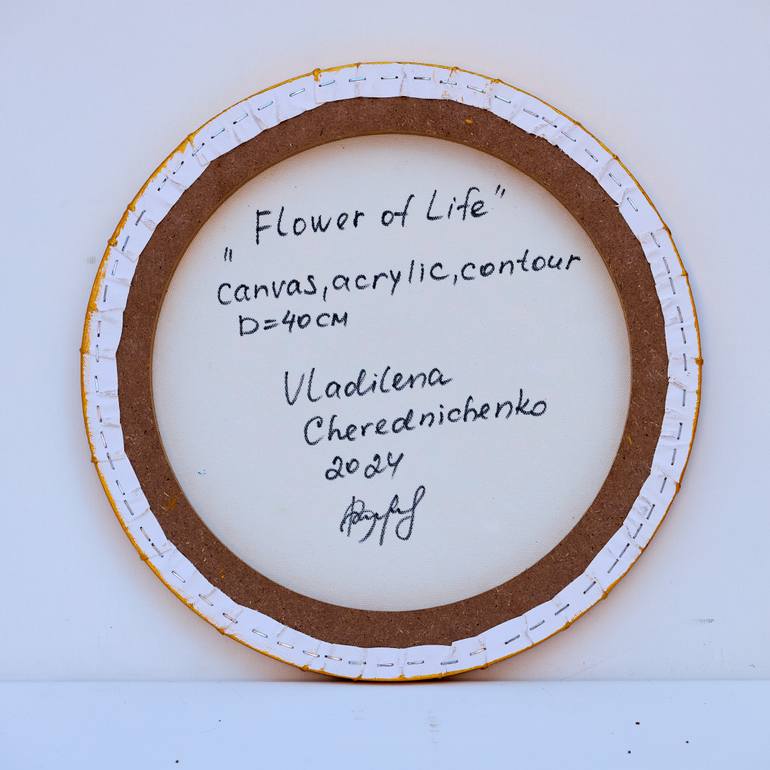 "Flower of Life"
canvas, acrylic, contour
D=40см
Vladilena
Cherednichenko
2024